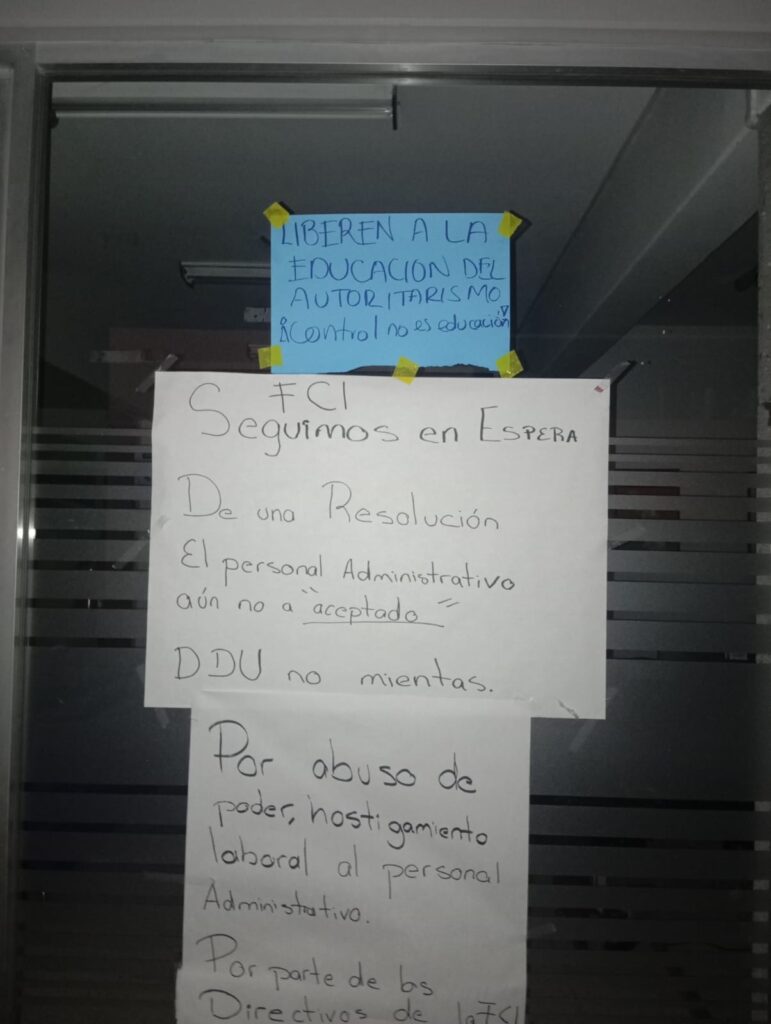 LIBEREN A LA
EDUCACION DEL
AUTORITARISMO
¡Control no es educación!
FCI
Seguimos en ESPERA
De una Resolución
El personal Administrativo
aún no a "aceptado"
DDU no mientas.
Por abuso de
poder, hostigamiento
laboral al personal
Administrativo.
Por parte de los
Directivos de la FCI